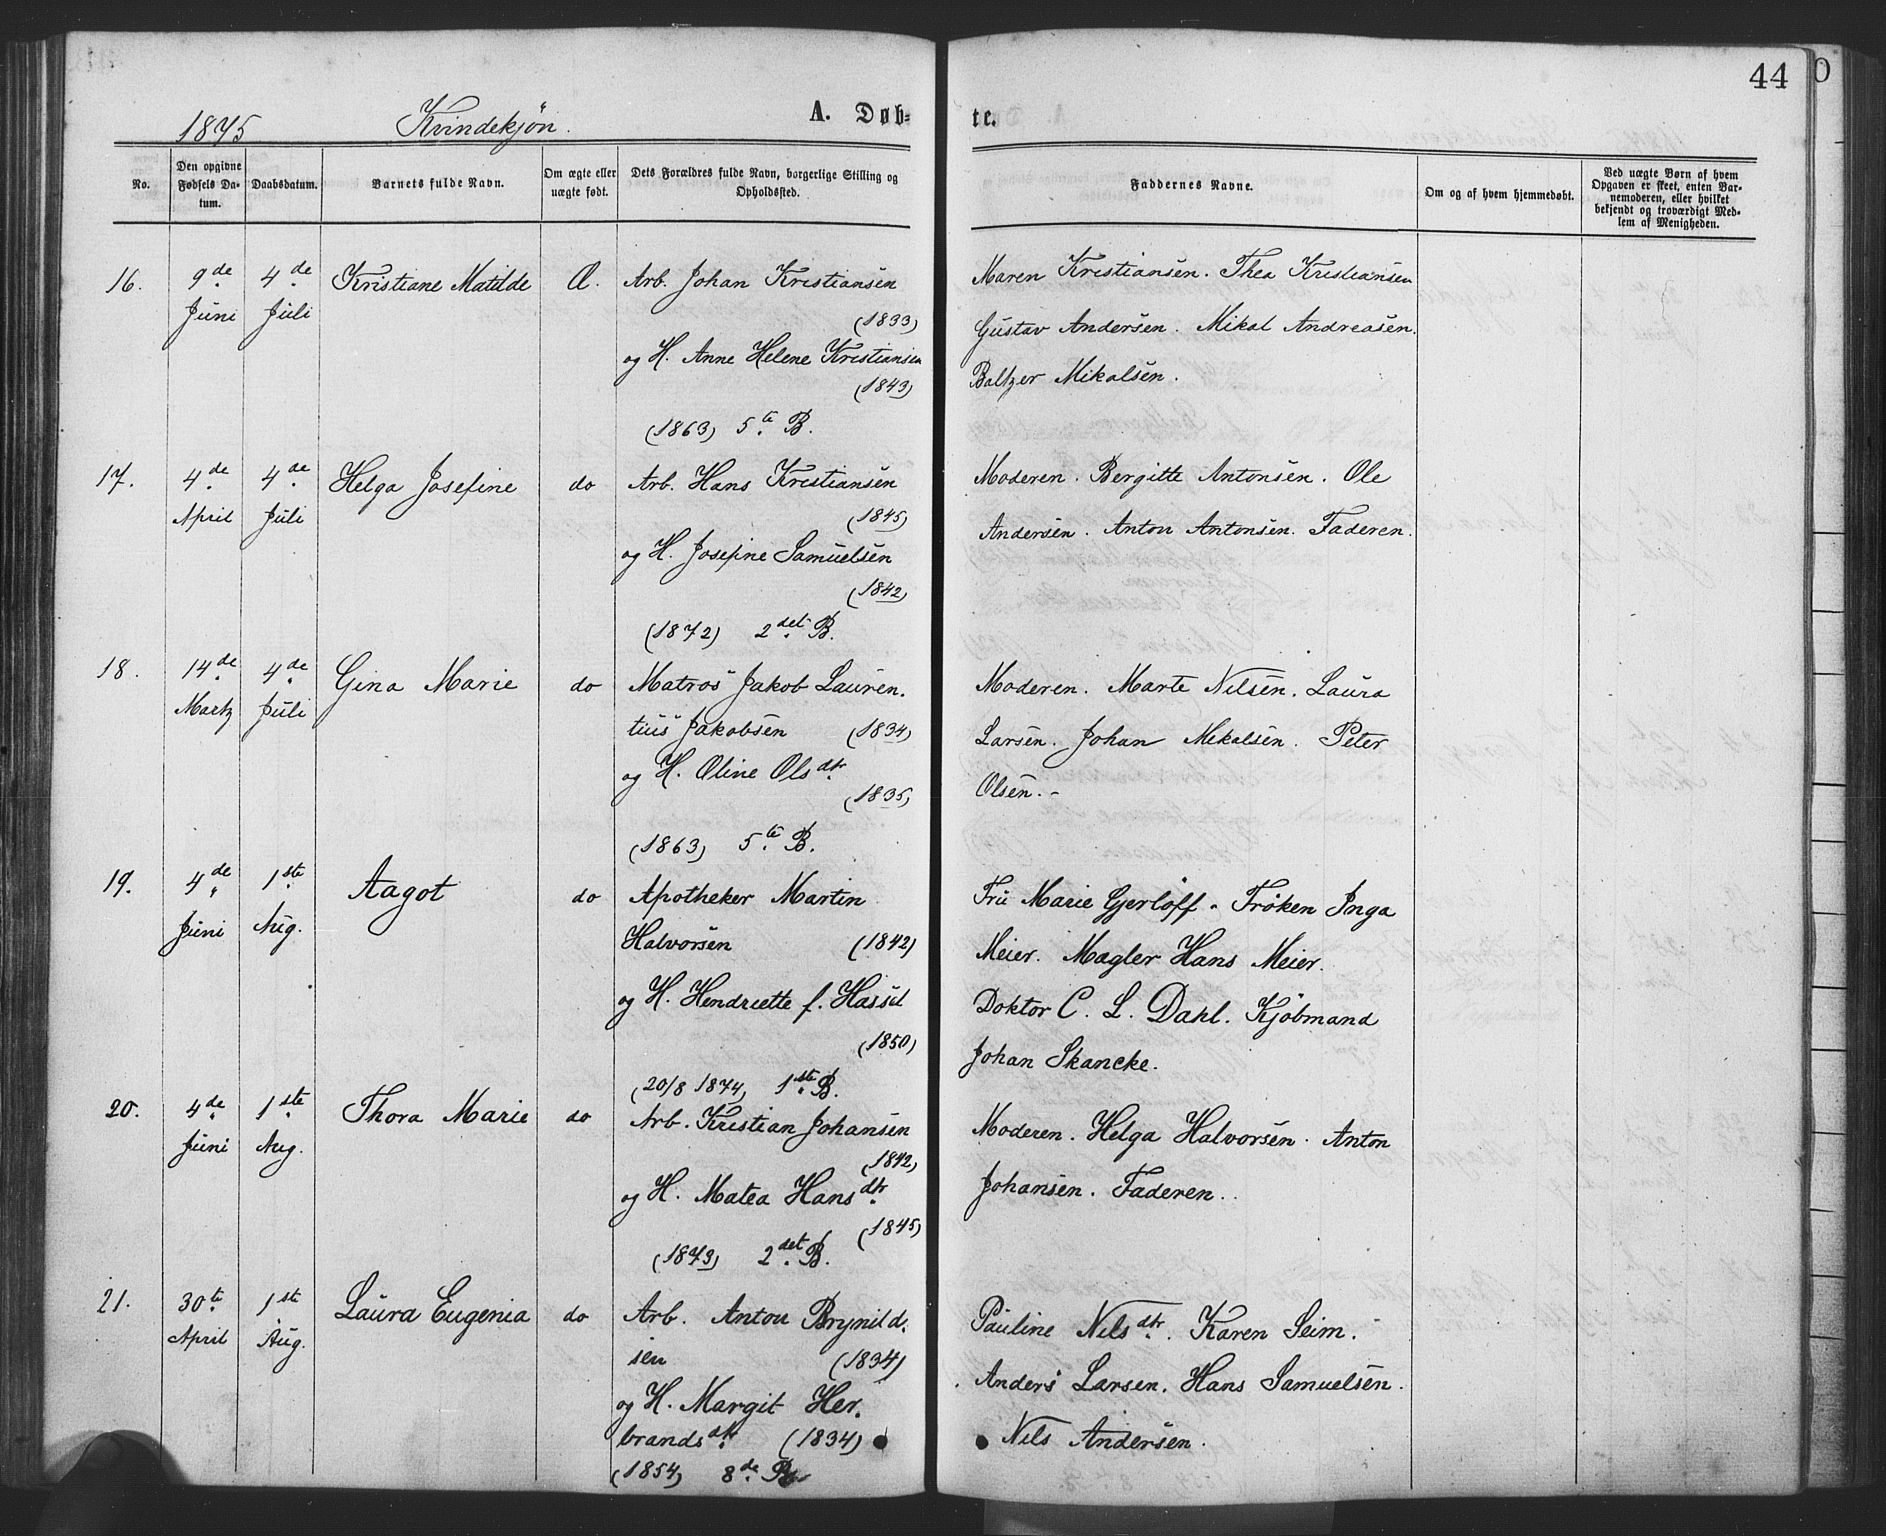 44
1875 Kvindekjøn. A. Døb= te.
No.
Den opgivne Fødsels Da- tum.
Daabsdatum.
Barnets fulde Navn.
Om ægte eller uægte født.
Dets Forældres fulde Navn, borgerlige Stilling og Opholdssted.
Faddernes Navne.
Om og af hvem hjemmedøbt.
Ved uægte Børn af hvem
Opgaven er skeet, enten Bar-
nemoderen, eller hvilket
bekjendt og troværdigt Med-
lem af Menigheden.
16. 9de Juni 4de Juli Kristiane Matilde Æ. Arb. Johan Kristiansen
(1833)
og H. Anne Helene Kristiansen
(1843)
(1863) 5te B.
Maren Kristiansen. Thea Kristiansen
Gustav Andersen. Mikal Andreasen.
Baltzer Mikalsen.
17. 4de April 4de Juli Helga Josefine do Arb. Hans Kristiansen
(1845)
og H. Josefine Samuelsen
(1842)
(1872) 2det B.
Moderen. Bergitte Antonsen. Ole
Andersen. Anton Antonsen. Faderen.
18. 14de Martz 4de Juli Gina Marie do Matros Jakob Lauren.
tius Jakobsen (1834)
og H. Oline Olsdtr
(1835)
(1863) 5te B.
Moderen. Marte Nilsen. Laura
Larsen. Johan Mikalsen. Peter
Olsen.-
19. 4de Juni 1ste Aug. Aagot do Apotheker Martin
Halvorsen (1842)
og H. Hendriette f. Hassel
(1850)
(20/8 1874) 1ste B.
Fru Marie Gjerløff - Frøken Inga
Meier. Mægler Hans Meier.
Doktor C. L. Dahl. Kjøbmand
Johan Skancke.
20. 4de Juni 1ste Aug. Thora Marie do Arb. Kristian Johansen
(1842)
og H. Matea Hansdtr
(1845)
(1873) 2det B.
Moderen. Helga Halvorsen. Anton
Johansen. Faderen.
21. 30te April 1ste Aug. Laura Eugenia do Arb. Anton Brynild.
sen (1834)
og H. Margit Her.
brandsdtr (1834)
(1854) 8de B.
Pauline Nilsdtr. Karen Seim.
Anders Larsen. Hans Samuelsen.
Nils Andersen.